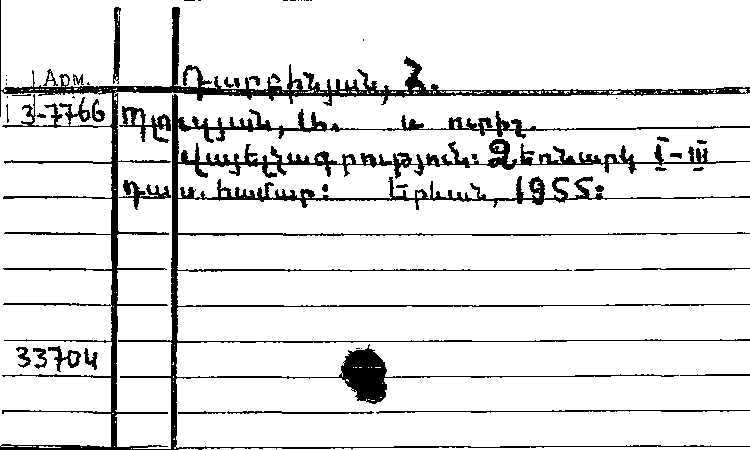 Арм.
Դարբինյան, Հ.
3-7766
Պլուզյան, Լ. և ուրիշ.
Վայելչագրություն: Ձեռնարկ I-III
դաս. համար: Երևան, 1955:
33704